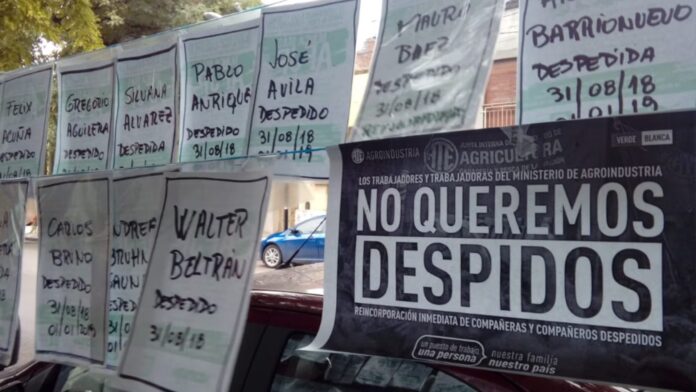 FELIX
ACUÑA
DESPEDIDO
GREGORIO
AGUILERA
DESPEDIDO
SILVANA
ALVAREZ
DESPEDIDA
PABLO
ANRIQUE
DESPEDIDO
31/08/18
JOSÉ
AVILA
DESPEDIDO
31/08/18
MAURO
BAEZ
DESPEDIDO
31/08/18
BARRIONUEVO
DESPEDIDA
31/08/18
01/01/19
CARLOS
BRINO
DESPEDIDO
31/08/18
01/01/2019
31/08/18
WALTER
BELTRÁN
DESPEDIDO
31/08/18
ATE AGROINDUSTRIA
JUNTA INTERNA DE
AGRICULTURA
VERDE BLANCA
LOS TRABAJADORES Y TRABAJADORAS DEL MINISTERIO DE AGROINDUSTRIA
NO QUEREMOS
DESPIDOS
REINCORPORACIÓN INMEDIATA DE COMPAÑERAS Y COMPAÑEROS DESPEDIDOS
un puesto de trabajo
una persona
nuestra familia
nuestro país